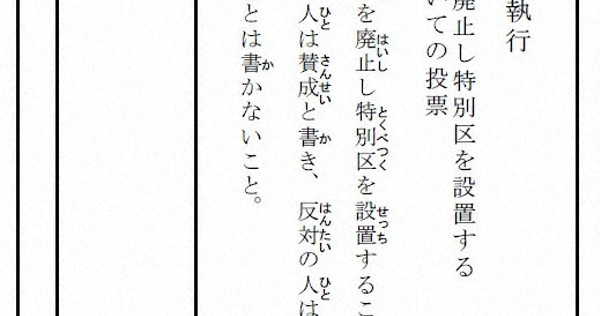 執行
廃止し特別区を設置する
いての投票
を廃止し特別区を設置するこ
人は賛成と書き、反対の人は
とは書かないこと。